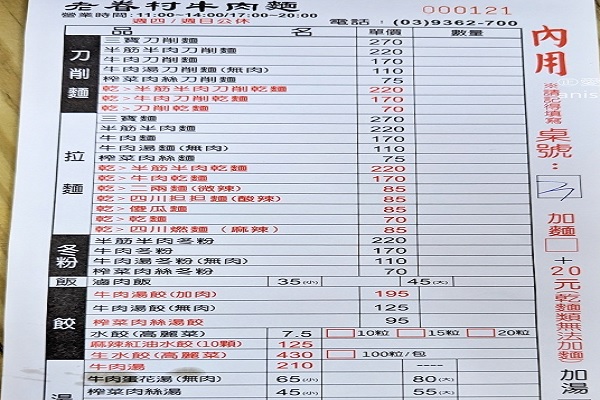 老眷村牛肉麵
營業時間:11:00~14:00/17:00~20:00
週四/週日公休
電話:(03)9362-700
000121
品名 單價 數量
刀削麵
三寶刀削麵 270
半筋半肉刀削麵 220
牛肉刀削麵 170
牛肉湯刀削麵(無肉) 110
榨菜肉絲刀削麵 75
乾>半筋半肉刀削乾麵 220
乾>牛肉刀削乾麵 170
乾>刀削乾麵 70
拉麵
三寶麵 270
半筋半肉麵 220
牛肉麵 170
牛肉湯麵(無肉) 110
榨菜肉絲麵 75
乾>半筋半肉乾麵 220
乾>牛肉乾麵 170
乾>二兩麵(微辣) 85
乾>四川担担麵(酸辣) 85
乾>傻瓜麵 85
乾>乾麵 70
乾>四川燃麵(麻辣) 85
冬粉
半筋半肉冬粉 220
牛肉冬粉 170
牛肉湯冬粉(無肉) 110
榨菜肉絲冬粉 70
飯 滷肉飯 35(小) 45(大)
餃
牛肉湯餃(加肉) 195
牛肉湯餃(無肉) 125
榨菜肉絲湯餃 95
水餃(高麗菜) 7.5 10粒 15粒 20粒
麻辣紅油水餃(10顆) 125
生水餃(高麗菜) 430 100粒/包
湯
牛肉湯 210 ----
牛肉蛋花湯(無肉) 65(小) 80(大)
榨菜肉絲湯 45(小) 55(大)
內用
※請記得填寫
桌號:
加麵
+20元
乾麵類無法加麵
加湯